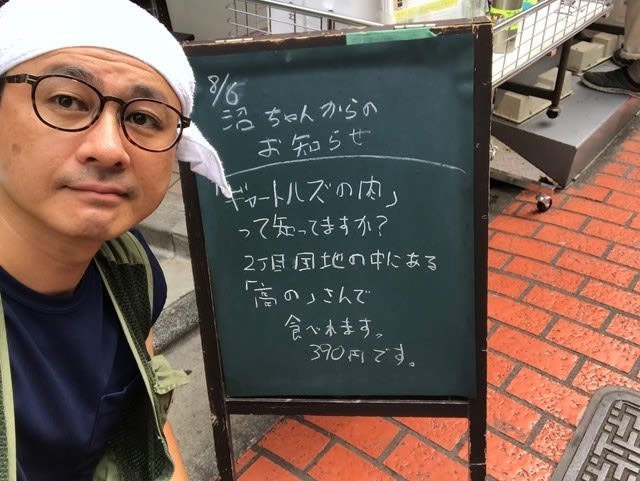 8/6
沼ちゃんからの
お知らせ
「ギャートルズの肉」
って知ってますか？
2丁目団地の中にある
「高の」さんで
食べれます。
390円です。